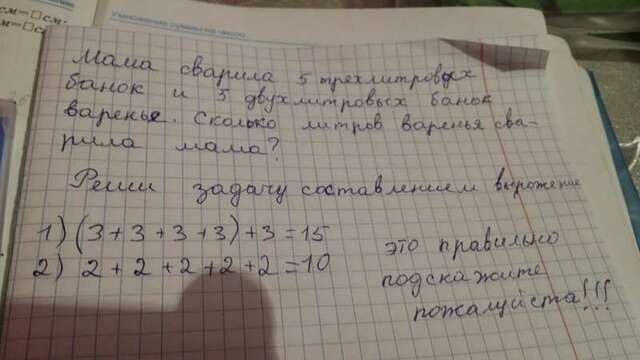 см=□см.
см=□с
Умножение суммы на число
Мама сварила 5 трехлитровых
банок и 5 двухлитровых банок
варенье. Сколько литров варенья сва-
рила мама?
Реши задачу составлением выражение
1) (3+3+3+3)+3=15
2) 2+2+2+2+2=10
это правильно
подскажите
пожалуйста!!!